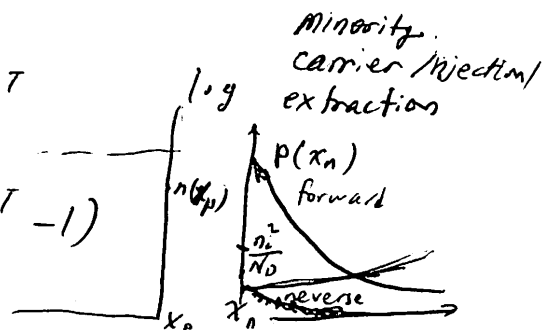 minority
carrier injection/
extraction
T
log
p(xₙ)
n(xₚ)
forward
T - 1)
nᵢ²/N_D
reverse
xₚ
xₙ